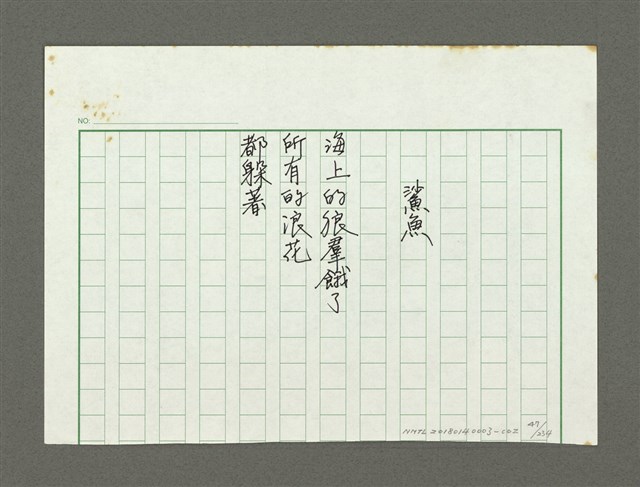 NO:
鯊魚
海上的狼羣餓了
所有的浪花
都躲著
NMTL20180140003-002
47/234